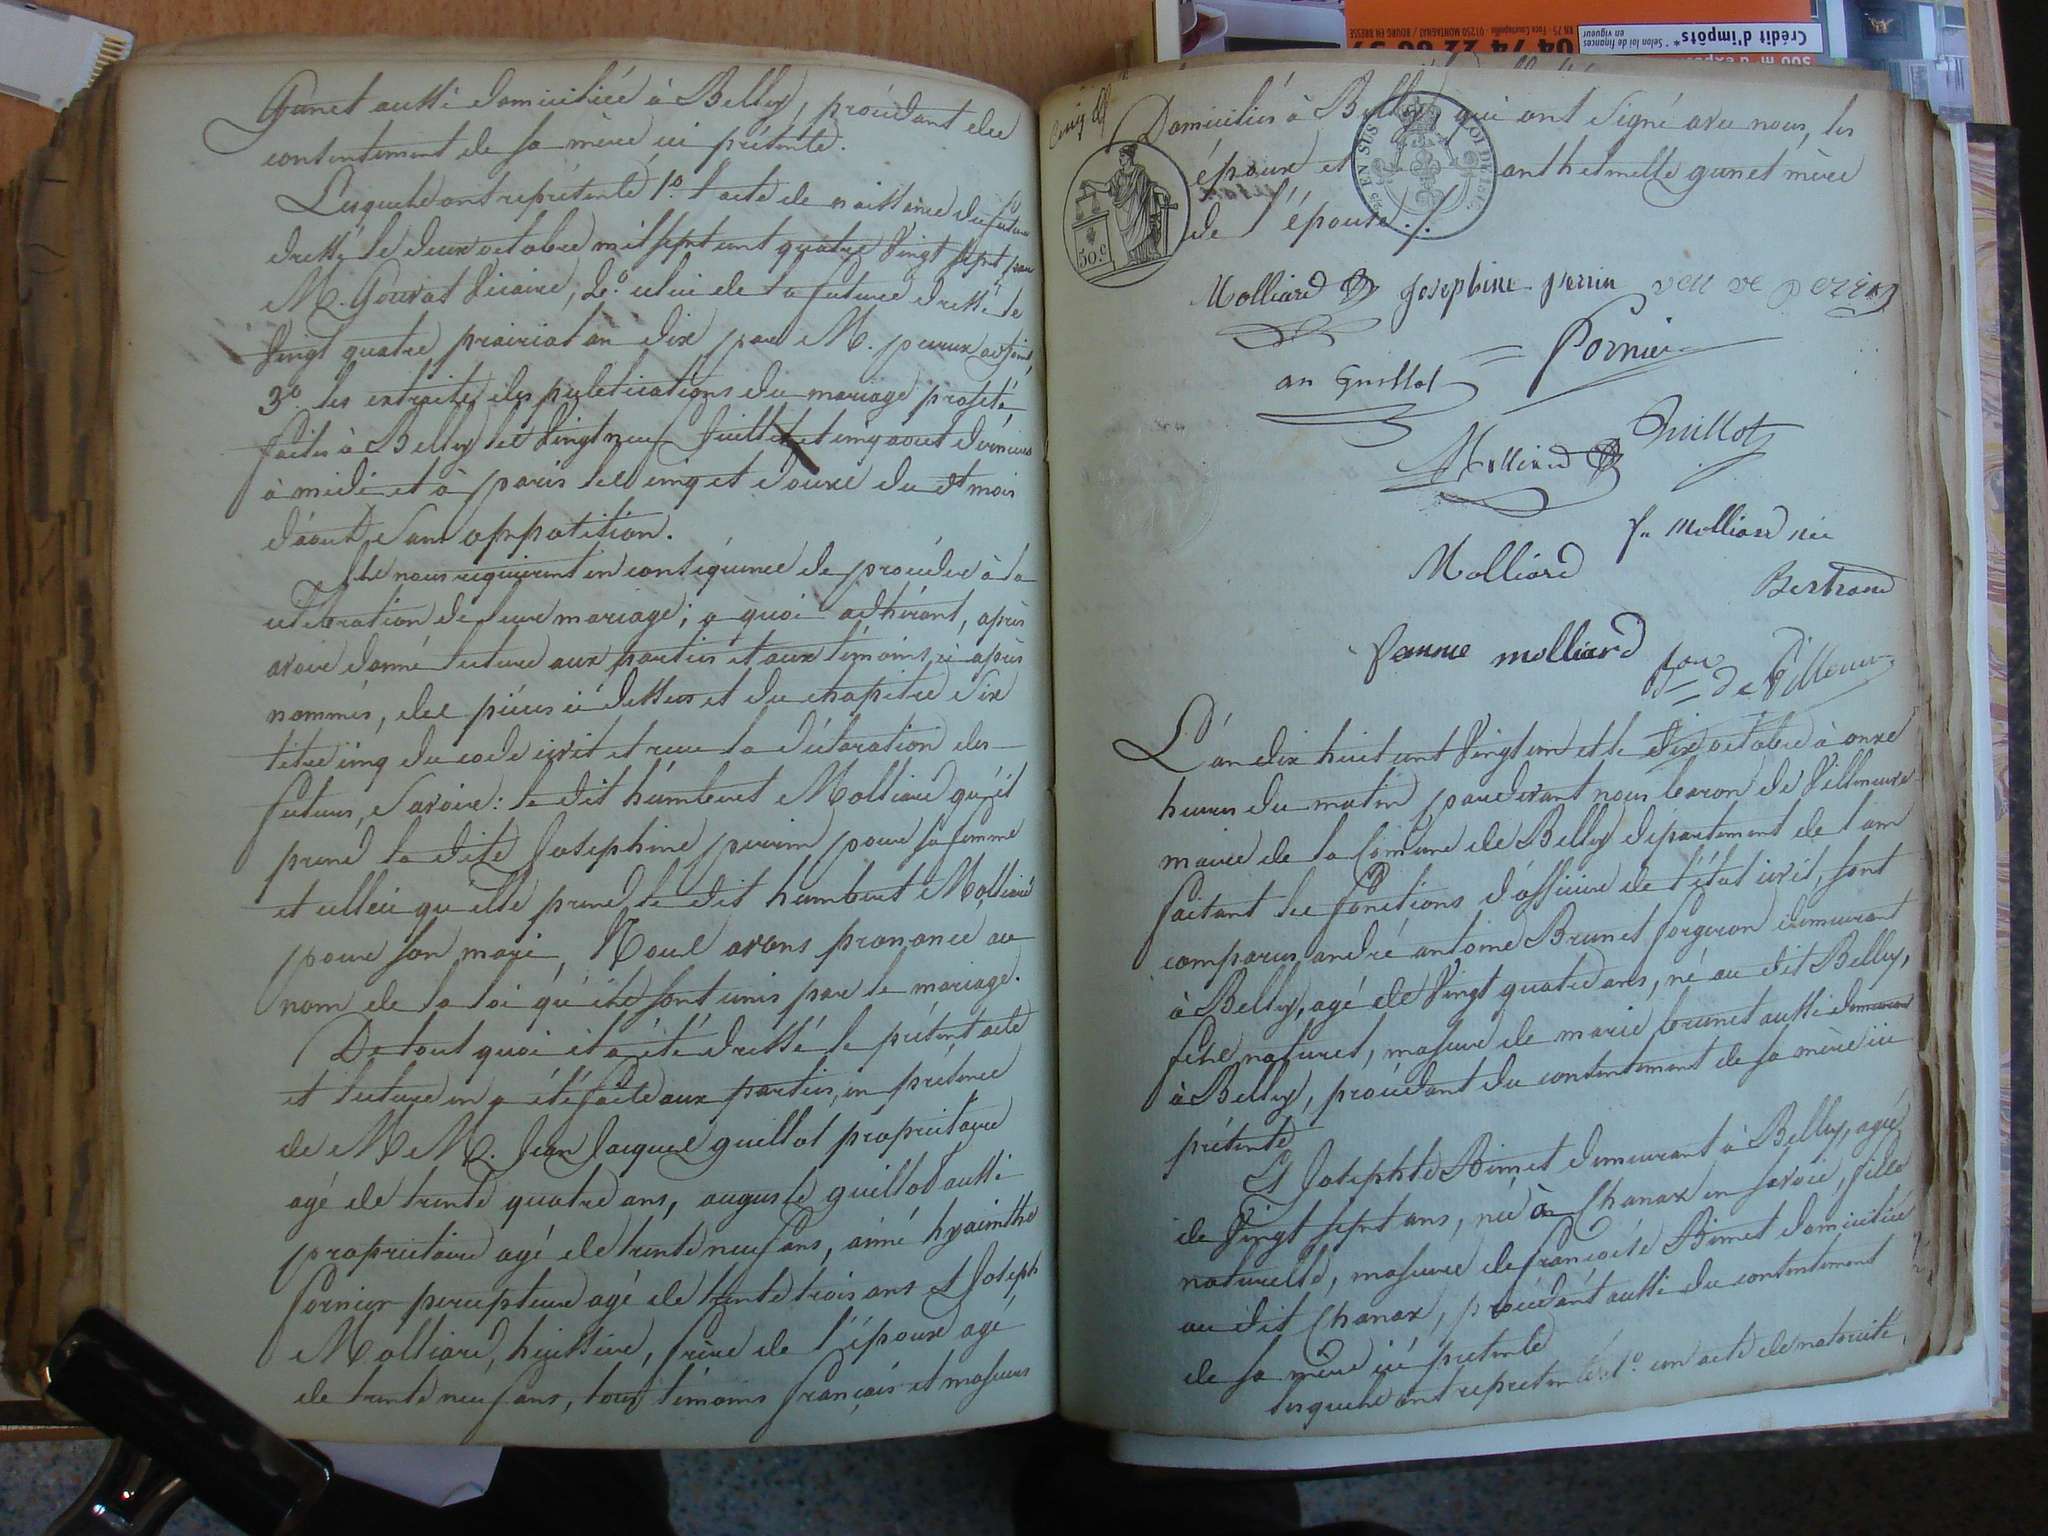 Gunet aussi domiciliée à Belley, procédant du
consentement de sa mère ici présente.
Lesquels ont représenté 1.° l'acte de naissance du futur
dressé le deux octobre mil sept cent quatre Vingt sept par
M. Gouvat Vicaire, 2.° celui de la future dressé le
Vingt quatre prairial an dix par M. adjoint,
3.° les extraits des publications du mariage projeté,
faites à Belley les Vingt neuf Juillet et cinq aout derniers
à midi et à paris les cinq et douze du dt mois
d'août sans opposition.
Ils nous requierent en conséquence de procéder à la
célébration de leur mariage; a quoi adhérant, après
avoir donné lecture aux parties et aux témoins, ci après
nommés, des pièces ci dessus et du chapitre six
titre cinq du code civil et reçu la déclaration des
futurs, Savoir: le dit humbert Molliard qu'il
prend la dite Josephine perrin pour sa femme
et celleci qu'elle prend le dit humbert Molliard
pour son mari, Nous avons prononcé au
nom de la loi qu'ils sont unis par le mariage.
De tout quoi il a été dressé le présent acte
et lecture en a été faite aux parties, en présence
de M M. Jean Jacques guillot propriétaire
agé de trente quatre ans, auguste guillot aussi
propriétaire agé de trente neuf ans, aimé hyacinthe
fornier percepteur agé de trente trois ans Et Joseph
Molliard, huissier, frère de l'époux agé
de trente neuf ans, tous témoins français et majeurs
Domiciliés à Belley qui ont Signé avec nous, les
époux et anthelmette gunet mère
de l'épouse./.
EN SUS
50.c
Molliard Josephine perrin veuve perrin
Fornier
an Guillot
Guillot
Molliard
fe Molliard née
Molliard
Bertrand
fannie molliard
Bon de Villeneuve
L'an dix huit cent Vingt un et le dix octobre à onze
heures du matin pardevant nous baron de Villeneuve
maire de la Commune de Belley département de l'ain
faisant les fonctions d'officier de l'état civil, sont
comparus andré antoine Brunet forgeron demeurant
à Belley, agé de Vingt quatre ans, né au dit Belley,
fils naturel, majeur de marie brunet aussi demeurant
à Belley, procédant du consentement de sa mère ici
présente
Et Josephte Bimet demeurant à Belley, agée
de Vingt sept ans, née à Chanax en savoie, fille
naturelle, majeure de françoise Bimet domiciliée
au dit Chanax, procédant aussi du consentement
de sa mère ici présente
lesquels ont représenté 1.° un acte de notoriété
Crédit d'impôts*
* Selon loi de finances
en vigueur
04 74 22 66 37
01250 MONTAGNAT / BOURG EN BRESSE